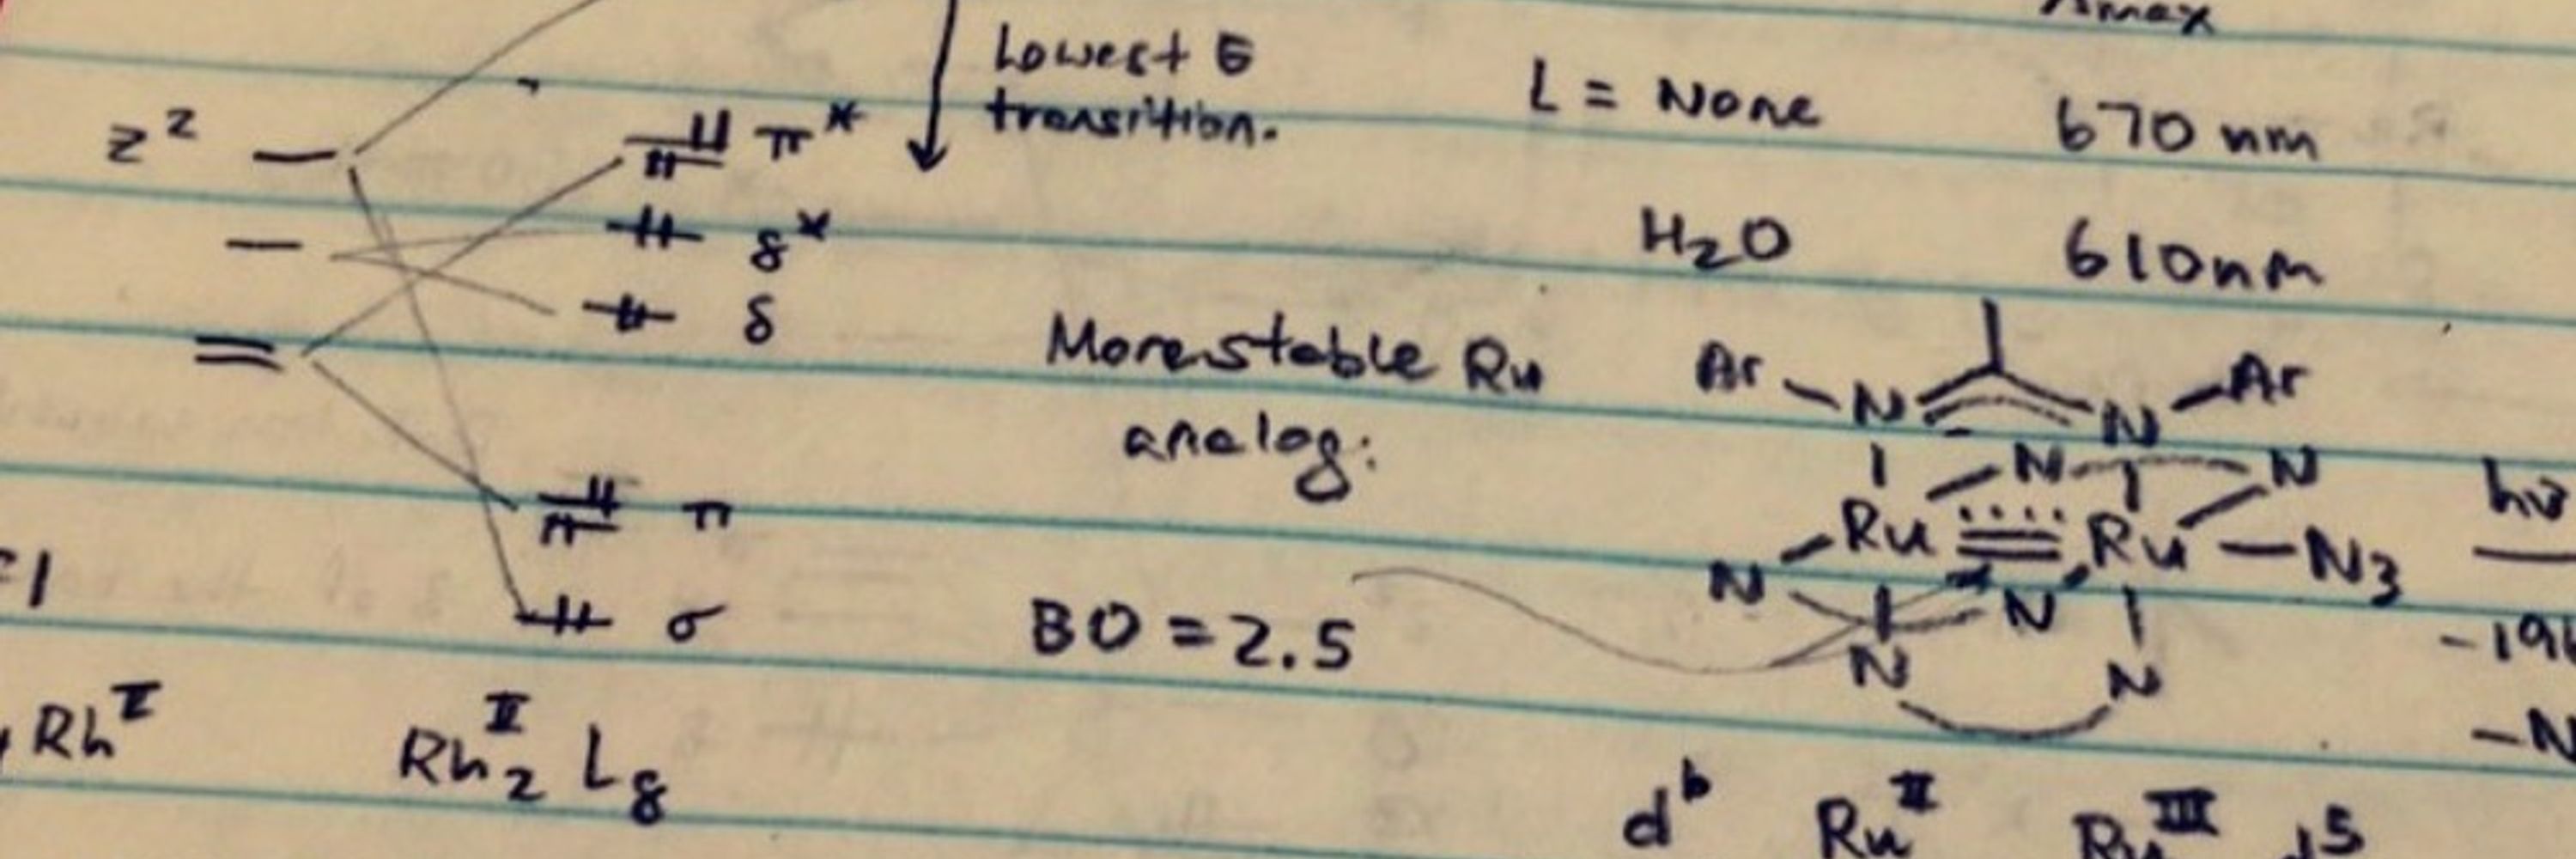 λmax
Lowest E
transition.
z² π*
L = None 670 nm
δ*
H₂O 610nm
δ
More stable Ru
analog:
Ar N N Ar
N N
π
Ru Ru N₃
hν
N N
=1
σ
BO = 2.5
N N
-196
-N
Rh^II
Rh₂^II L₈
d⁶ Ru^II Ru^III d⁵